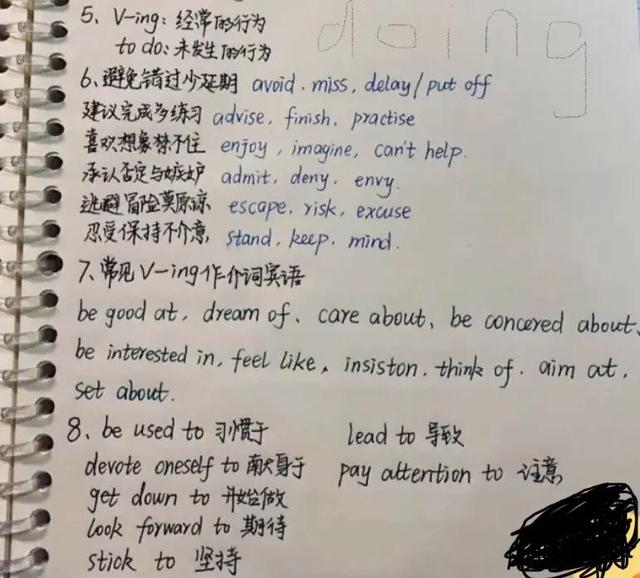 5、V-ing: 经常的行为
doing
to do: 未发生的行为
6、避免错过少延期 avoid. miss, delay/put off
建议完成多练习 advise, finish, practise
喜欢想象禁不住 enjoy, imagine, can't help.
承认否定与嫉妒 admit, deny, envy.
逃避冒险莫原谅 escape, risk, excuse
忍受保持不介意, stand, keep, mind.
7、常见V-ing作介词宾语
be good at, dream of、care about、be concered about、
be interested in, feel like, insiston, think of, aim at,
set about.
8、be used to 习惯于 lead to 导致
devote oneself to 献身于 pay attention to 注意
get down to 开始做
look forward to 期待
stick to 坚持